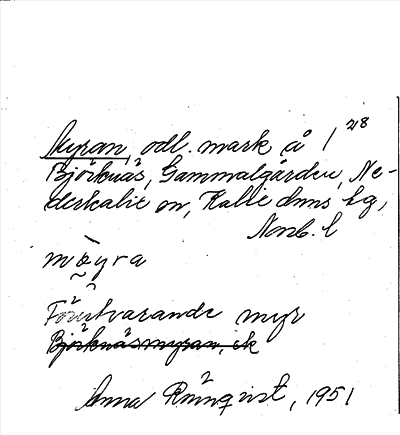 Myran, odl. mark å 1²⁸
Björknäs, Gammalgården, Ne-
derkalix sn, Kalix dnns hg,
Norrb. l
Förutvarande myr
Björknäsmyran, ik
Anna Rönnqvist, 1951